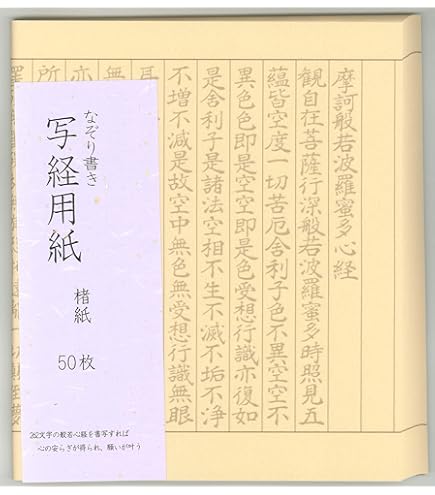 摩訶般若波羅蜜多心経
觀自在菩薩行深般若波羅蜜多時照見五
蘊皆空度一切苦厄舎利子色不異空空不
異色色即是空空即是色受想行識亦復如
是舎利子是諸法空相不生不滅不垢不浄
不増不減是故空中無色無受想行識無眼
耳
無
亦
所
なぞり書き
写経用紙
楮紙
50枚
262文字の般若心経を書写すれば
心の安らぎが得られ、願いが叶う